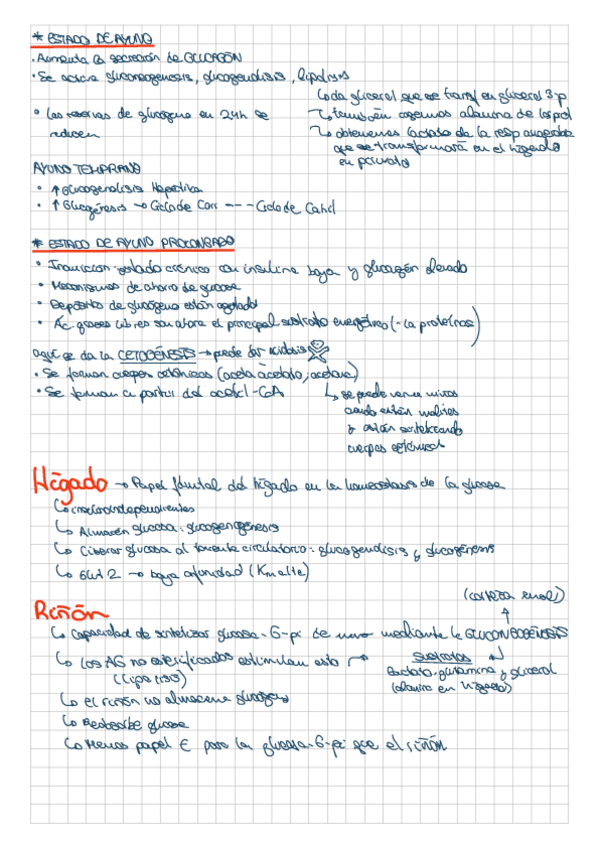 * ESTADO DE AYUNO
· Aumenta la secreción de GLUCAGÓN
· Se activa gluconeogenesis, glucogenolisis, lipolisis
↳ da glicerol que se transf en glicerol 3-p
• Las reservas de glucogeno en 24h se reducen
↳ también cogemos alanina de las pol
↳ obtenemos lactato de la resp anaerobia
que se transformará en el hígado
en piruvato
AYUNO TEMPRANO
• ↑ Glucogenolisis Hepática
• ↑ Glucogénesis → Ciclo de Cori --- Ciclo de Cahil
* ESTADO DE AYUNO PROLONGADO
• Inanición: estado crónico con insulina baja y glucagón elevado
• Mecanismos de ahorro de glucosa
• Depósitos de glucógeno están agotados
• Ác. grasos libres son ahora el principal sustrato energético (- la proteínas)
aquí se da la CETOGÉNESIS → puede dar acidosis
• Se forman cuerpos cetónicos (aceto acetato, acetona)
• Se forman a partir del acetil-CoA
↳ se puede ver en niños
cuando están malitos
y están sintetizando
cuerpos cetónicos
Hígado → Papel fundamental del hígado en la homeostasis de la glucosa
↳ insulinoindependientes
↳ Almacén glucosa: glucogenogénesis
↳ Liberar glucosa al torrente circulatorio: glucogenolisis y glucogénesis
↳ Glut 2 → baja afinidad (Km alta)
(corteza renal)
Riñón
↳ Capacidad de sintetizar glucosa-6-pi de novo mediante la GLUCONEOGÉNESIS
↳ Los AG no esterificados estimulan esto →
(lipolisis)
Sustratos
Lactato, glutamina y glicerol
(alanina en hígado)
↳ El riñón no almacena glucogeno
↳ Reabsorbe glucosa
↳ Menos papel € para la glucosa-6-pi que el riñón